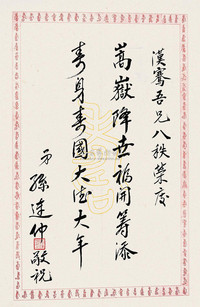 漢騫吾兄八秩榮慶
嵩嶽降世福開籌添
壽身壽國大德大年
弟孫連仲敬祝